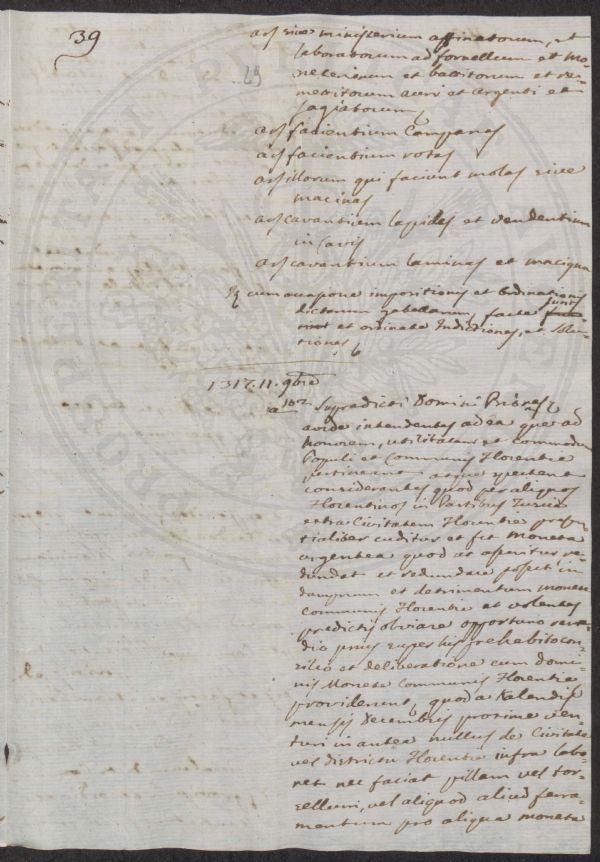 39
29
ars sive ministerium affinatorum, et
laboratorum ad fornellum et mo-
neteriorum et battitorum et re-
mettitorum auri et argenti et
sagiatorum
ars facientium Campanas
ars facientium rotas
ars illorum qui faciunt molas sive
macinas
ars cavantium lapides et vendentium
in Cavis
ars cavantium laminas et macigna
Et cum occasione impositionis et Ordinationis
dictarum gabellarum, facte sunt
et ordinate Indictiones, et Solu-
tiones
1317. 11. 9bris
a 102
Supradicti Domini Priores
avide intendentes ad ea que ad
honorem, utilitatem et commodum
Populi et Communis Florentie
pertineant atque spectent
considerantes quod per aliquos
Florentinos in Partibus Tuscie
extra Civitatem Florentie
cuditur et fit Moneta
argentea quod ut asseritur re-
dundat et redundare posset in
dampnum et detrimentum monete
Communis Florentie et volentes
predictis obviare opportuno reme-
dio prius super his prehabito con-
silio et deliberatione cum domi-
nis Monete Communis Florentie
providerunt, quod a Kalendis
mensis Decembris proxime ven-
turi in antea nullus de Civitate
vel districtu Florentie infra labo-
ret nec faciat pillam vel tor-
sellum, vel aliquod aliud ferra-
mentum pro aliqua moneta